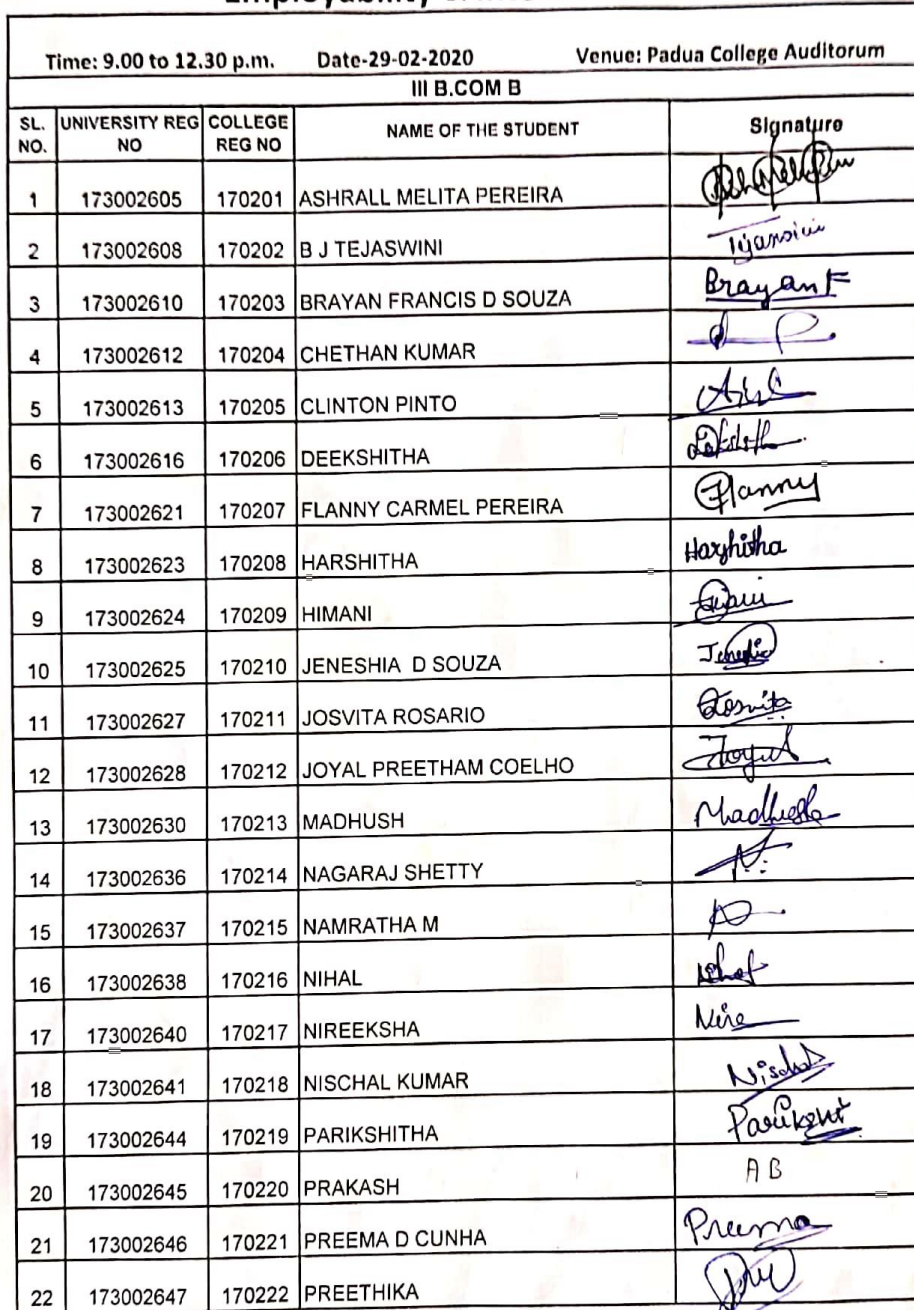 Time: 9.00 to 12.30 p.m. Date-29-02-2020 Venue: Padua College Auditorum
III B.COM B
SL. NO. UNIVERSITY REG NO COLLEGE REG NO NAME OF THE STUDENT Signature
1 173002605 170201 ASHRALL MELITA PEREIRA
2 173002608 170202 B J TEJASWINI
3 173002610 170203 BRAYAN FRANCIS D SOUZA Brayan F
4 173002612 170204 CHETHAN KUMAR
5 173002613 170205 CLINTON PINTO
6 173002616 170206 DEEKSHITHA
7 173002621 170207 FLANNY CARMEL PEREIRA Flanny
8 173002623 170208 HARSHITHA Harshitha
9 173002624 170209 HIMANI
10 173002625 170210 JENESHIA D SOUZA
11 173002627 170211 JOSVITA ROSARIO Josvita
12 173002628 170212 JOYAL PREETHAM COELHO
13 173002630 170213 MADHUSH
14 173002636 170214 NAGARAJ SHETTY
15 173002637 170215 NAMRATHA M
16 173002638 170216 NIHAL
17 173002640 170217 NIREEKSHA Nire
18 173002641 170218 NISCHAL KUMAR Nischal
19 173002644 170219 PARIKSHITHA
20 173002645 170220 PRAKASH A B
21 173002646 170221 PREEMA D CUNHA Preema
22 173002647 170222 PREETHIKA